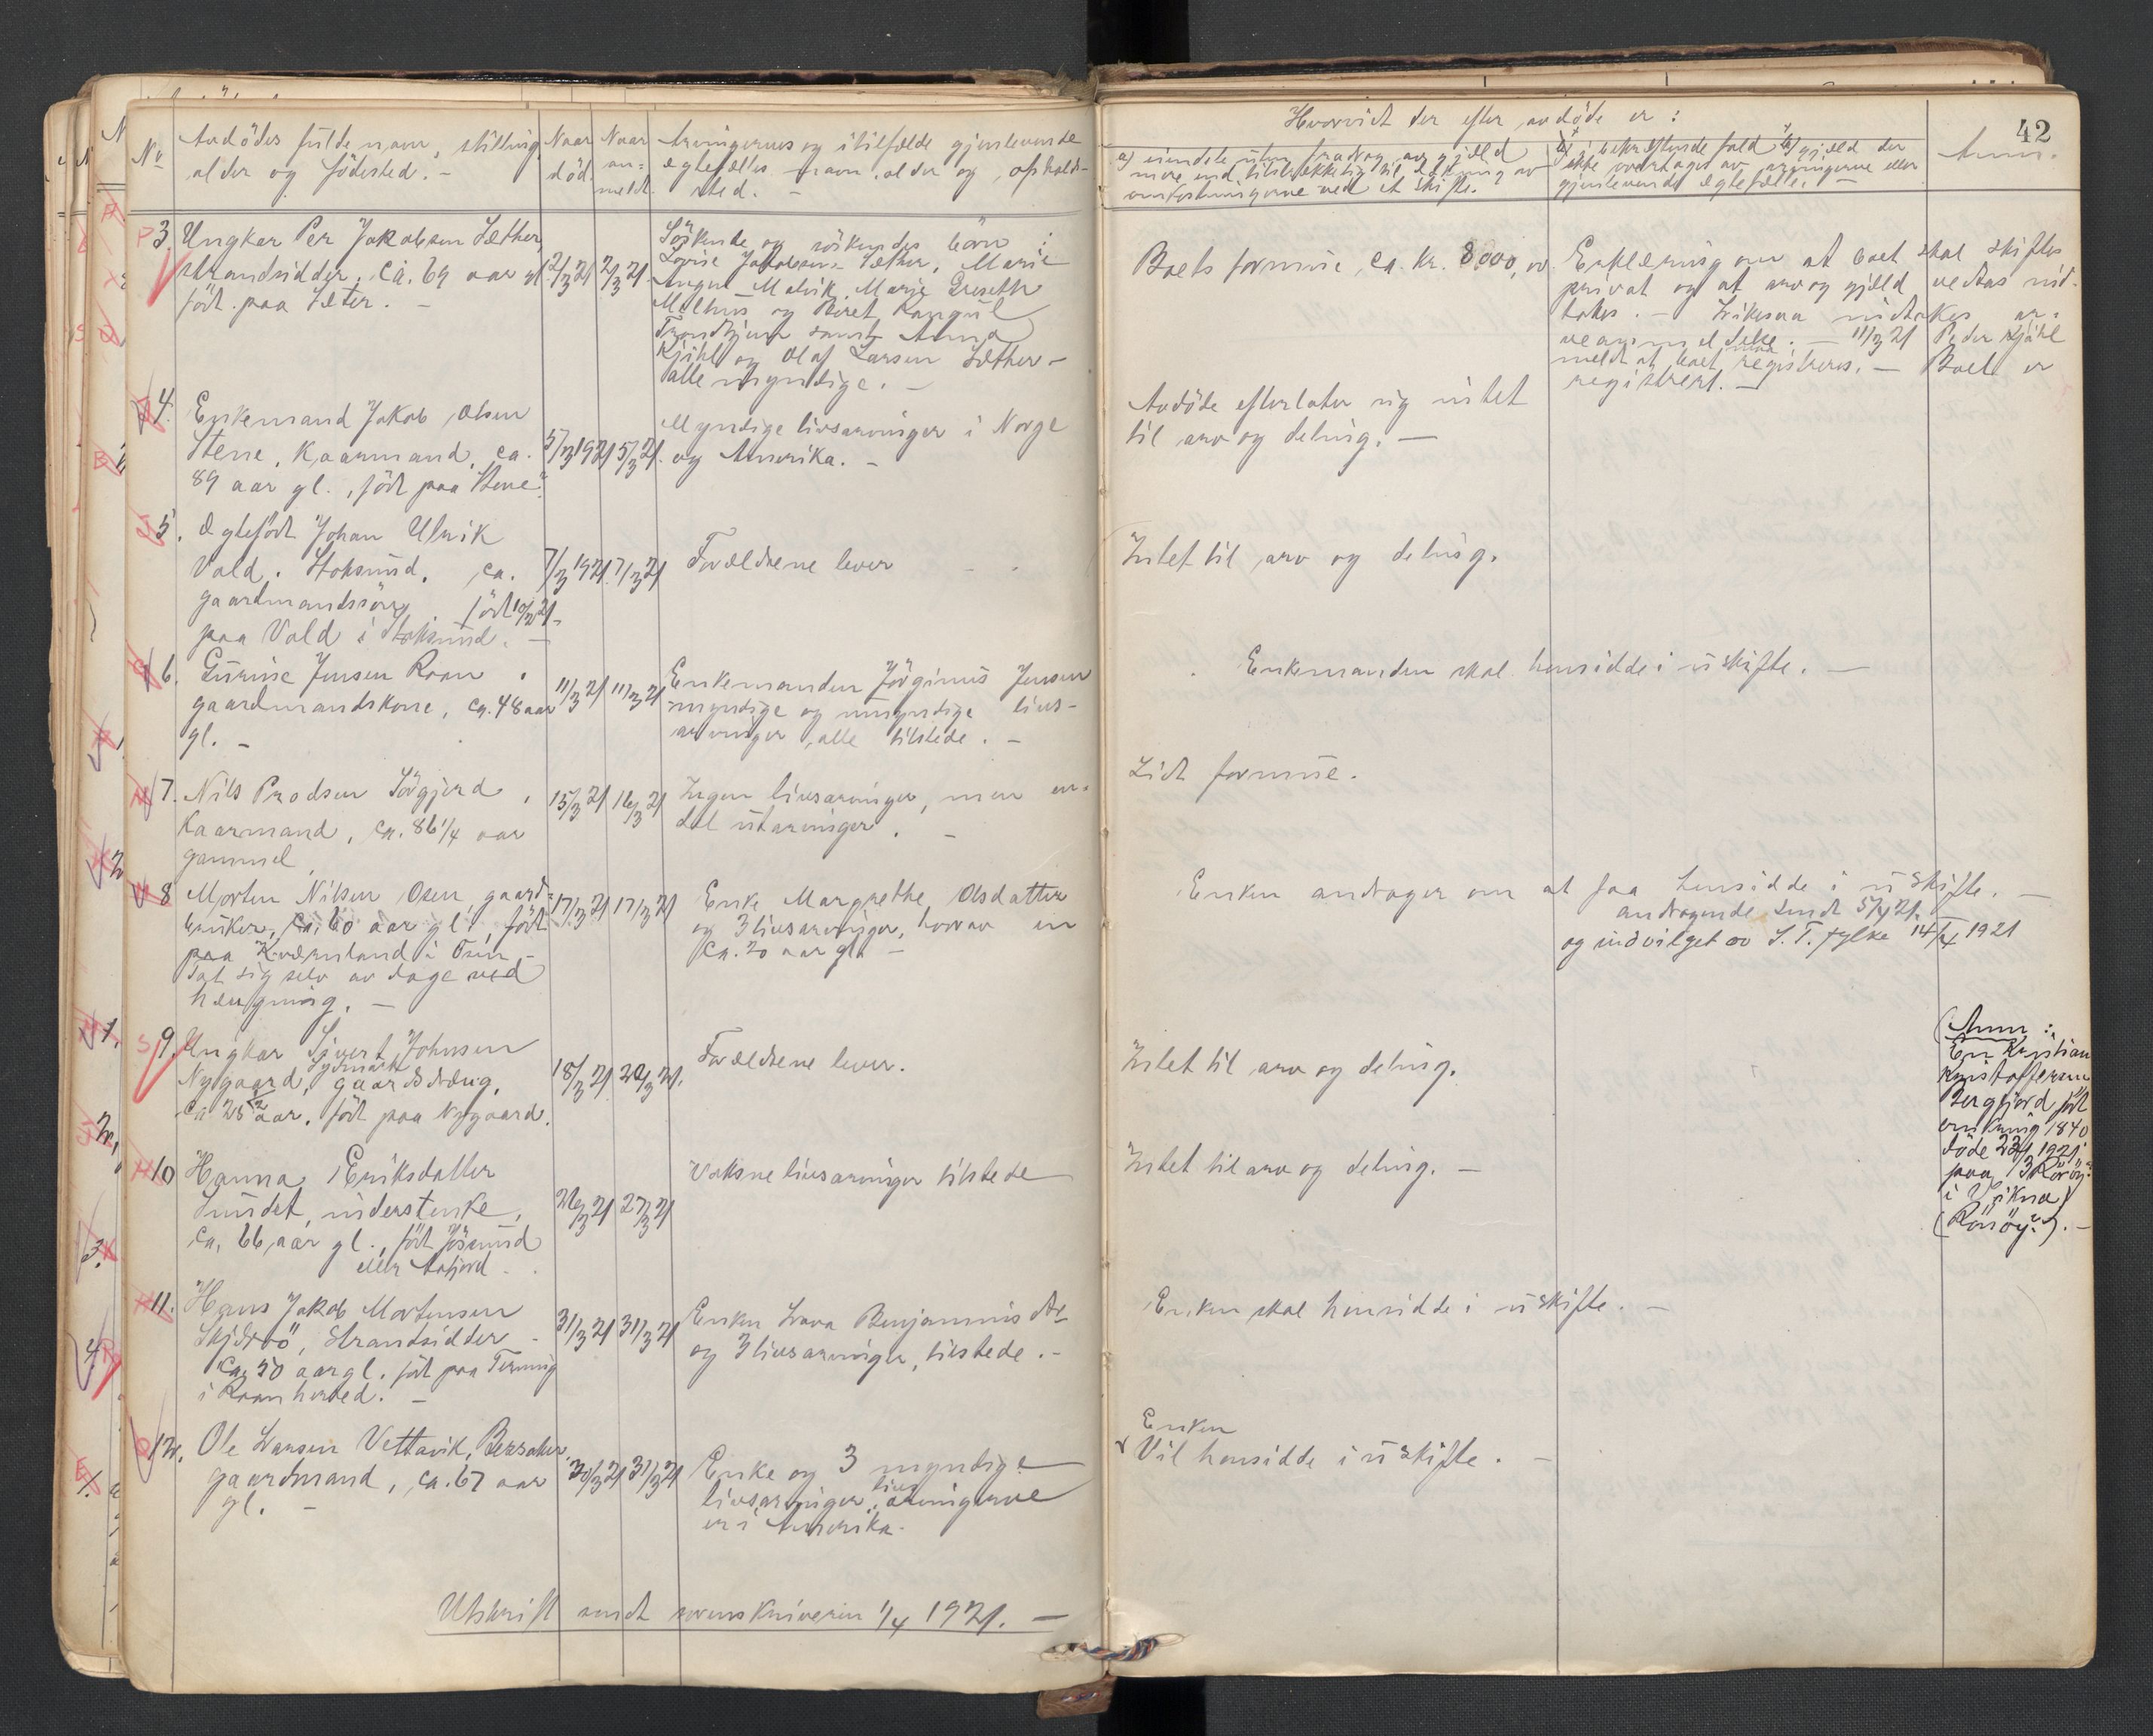 42
Nr.
Avdödes fulde navn, stilling,
alder og födested. -
Naar död.
Naar an-
meldt.
Arvingernes og i tilfælde gjenlevende
egtefælles navn, alder og opholds-
sted. -
Hvorvidt der efter avdöde er:
a) eiendele uten fradrag av gjæld
mere end tilstrækkelig til dækning av
omkostningerne ved et skifte.
b) i bekræftende fald gjæld der
ikke overtages av arvingerne eller
gjenlevende egtefælle. -
Anm.
3. Ungkar Per Jakobsen Sæther,
strandsidder, ca. 69 aar gl.
födt paa Sæter. -
2/3 21
2/3 21
Söskende og söskendes börn:
Lovise Jakobsen Sæther, Marie
Malvik, Marie
Melhus og Beret
Trondhjem samt Anna
Kjihl og Olaf Larsen Sæther -
alle myndige. -
Boets formue ca. kr. 8000,00
Erklæring om at boet skal skiftes
privat og at arv og gjæld vedtas
-
11/3 21 Peder Kjihl
meldt at boet registreres. - Boet er
registrert. -
4. Enkemand Jakob Olsen
Stene, Kaarmand, ca.
89 aar gl., födt paa Stene?
5/3 1921
5/3 21.
Myndige livsarvinger i Norge
og Amerika. -
Avdöde efterlater sig intet
til arv og deling. -
5. Egtefödt Johan Ulrik
Vold. Stoksund. ca.
gaardmandssön, födt 10/2 21.
paa Vold i Stoksund. -
7/3 1921.
7/3 21
Forældrene lever -
Intet til arv og deling.
6. Gurine Jensen Roan.
gaardmandskone, ca. 48 aar
gl. -
11/3 21
11/3 21
Enkemanden Jörginus Jensen
myndige og umyndige livs-
arvinger, alle tilstede. -
Enkemanden skal hensidde i uskifte. -
7. Nils Prodsen Sörgjerd,
Kaarmand, ca. 86 1/4 aar
gammel
15/3 21
16/3 21
Ingen livsarvinger, men en-
del utarvinger. -
Lidt formue.
8 Morten Nilsen Osen, gaard-
bruker, ca. 60 aar gl., födt
paa Kværnland i Osen -
Tat sig selv av dage ved
hængning. -
17/3 21
17/3 21
Enke Margrethe Olsdatter
og 3 livsarvinger, hvorav en
ca. 20 aar gl. -
Enken andrager om at faa hensidde i uskifte. -
andragende sendt 5/4 21.
og indvilget av S. T. fylke 14/4 1921
9 Ungkar Sivert Johnsen
Nygaard, gaardsdræng,
ca 28 1/2 aar, födt paa Nygaard.
18/3 21
20/3 21.
Forældrene lever.
Intet til arv og deling.
(Anm:
En Kristian
Kristoffersen
Bergfjord födt
omkring 1840
döde 22/3 1921
paa Röröy?
i Vikna)
(Rörsöy?). -
10 Hanna Eriksdatter
Sundet, inderstenke,
ca. 66 aar gl., födt Jösund
eller Aafjord.
26/3 21
27/3 21
Voksne livsarvinger tilstede
Intet til arv og deling. -
11. Hans Jakob Mortensen
Skjærvö, Strandsidder -
ca 50 aar gl. födt paa Terning
i Roan herred. -
31/3 21
31/3 21
Enken Lava Benjaminsdtr
og 3 livsarvinger, tilstede. -
Enken skal hensidde i uskifte. -
12. Ole Larsen Vettavik, Bessaker
gaardmand, ca. 67 aar
gl. -
30/3 21
31/3 21
Enke og 3 myndige
livsarvinger, livsarvingerne
er i Amerika.
Enken
Vil hensidde i uskifte. -
Utskrift sendt sorenskriveren 1/4 1921. -